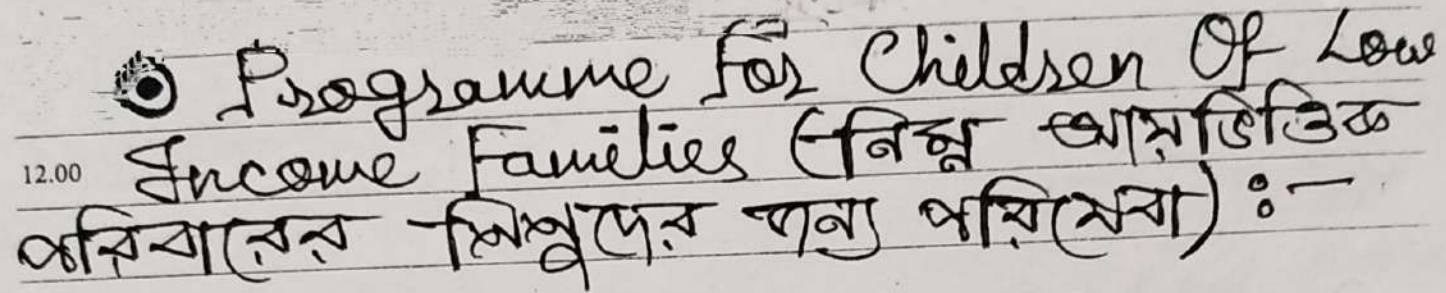 Programme For Children Of Low
12.00 Income Families (নিম্ন আয়ভিত্তিক
পরিবারের শিশুদের জন্য পরিষেবা) :-